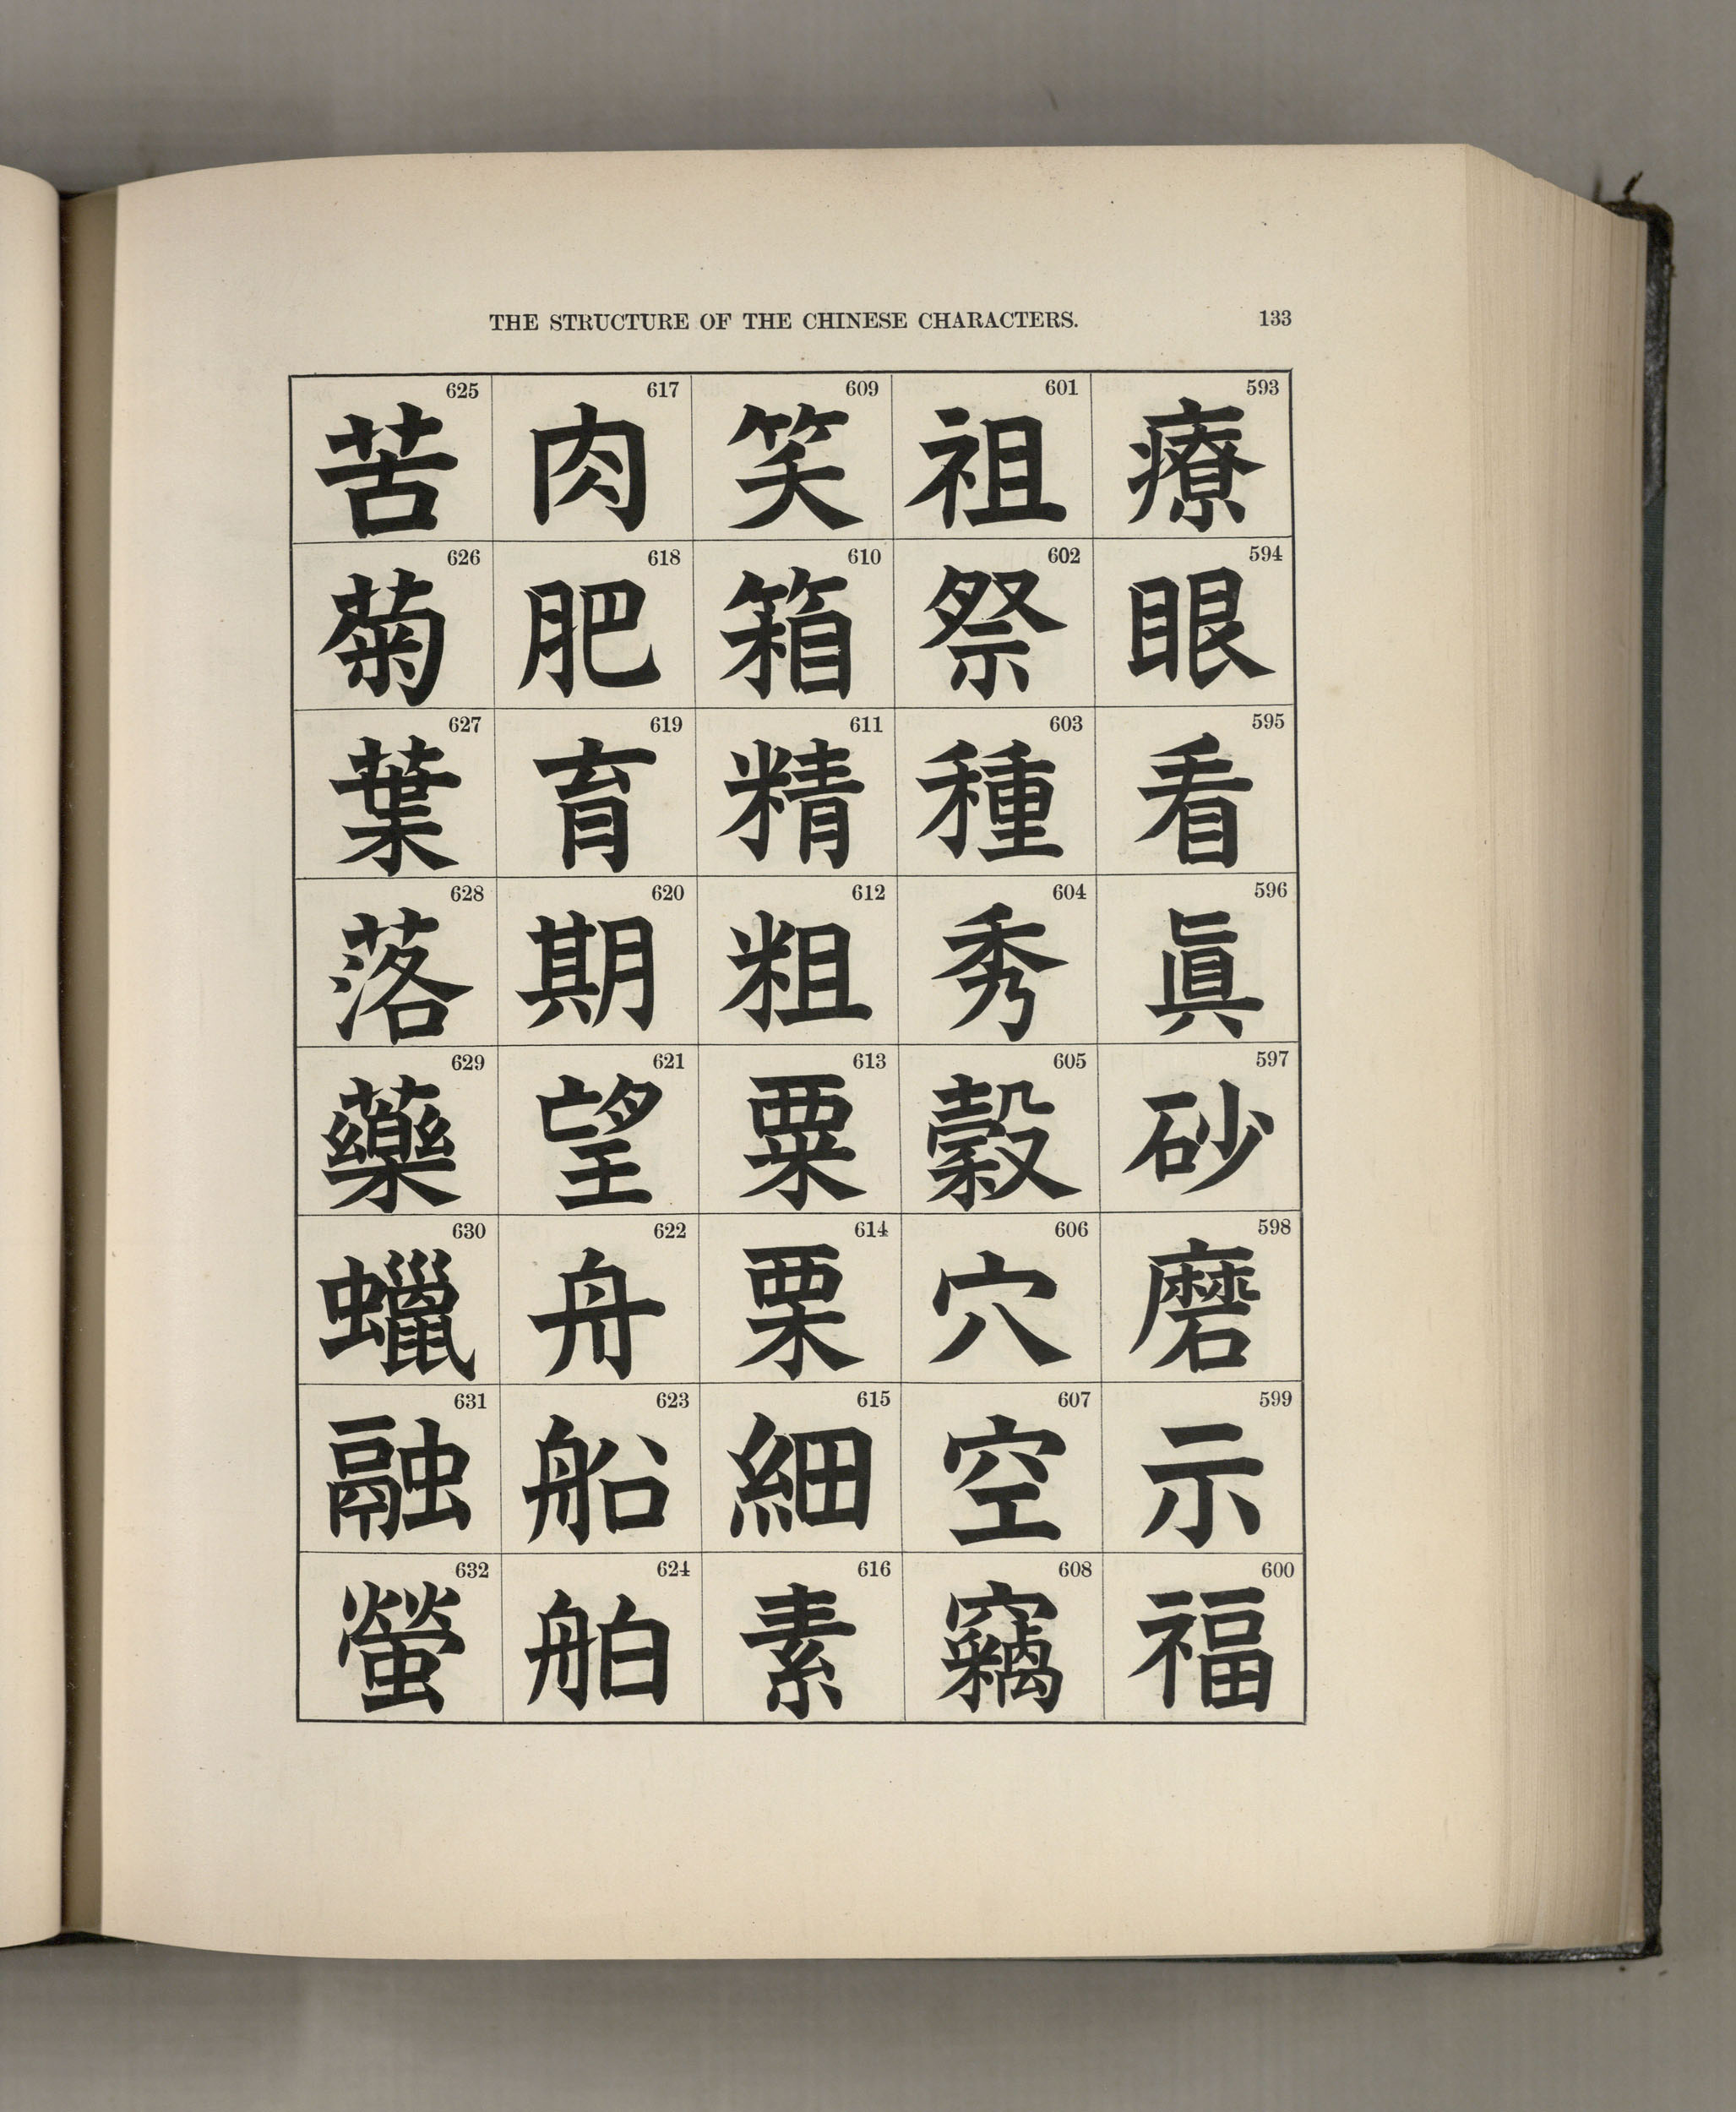 THE STRUCTURE OF THE CHINESE CHARACTERS. 133
593 療
594 眼
595 看
596 眞
597 砂
598 磨
599 示
600 福
601 祖
602 祭
603 種
604 秀
605 穀
606 穴
607 空
608 竊
609 笑
610 箱
611 精
612 粗
613 粟
614 栗
615 細
616 素
617 肉
618 肥
619 育
620 期
621 望
622 舟
623 船
624 舶
625 苦
626 菊
627 葉
628 落
629 藥
630 蠟
631 融
632 螢